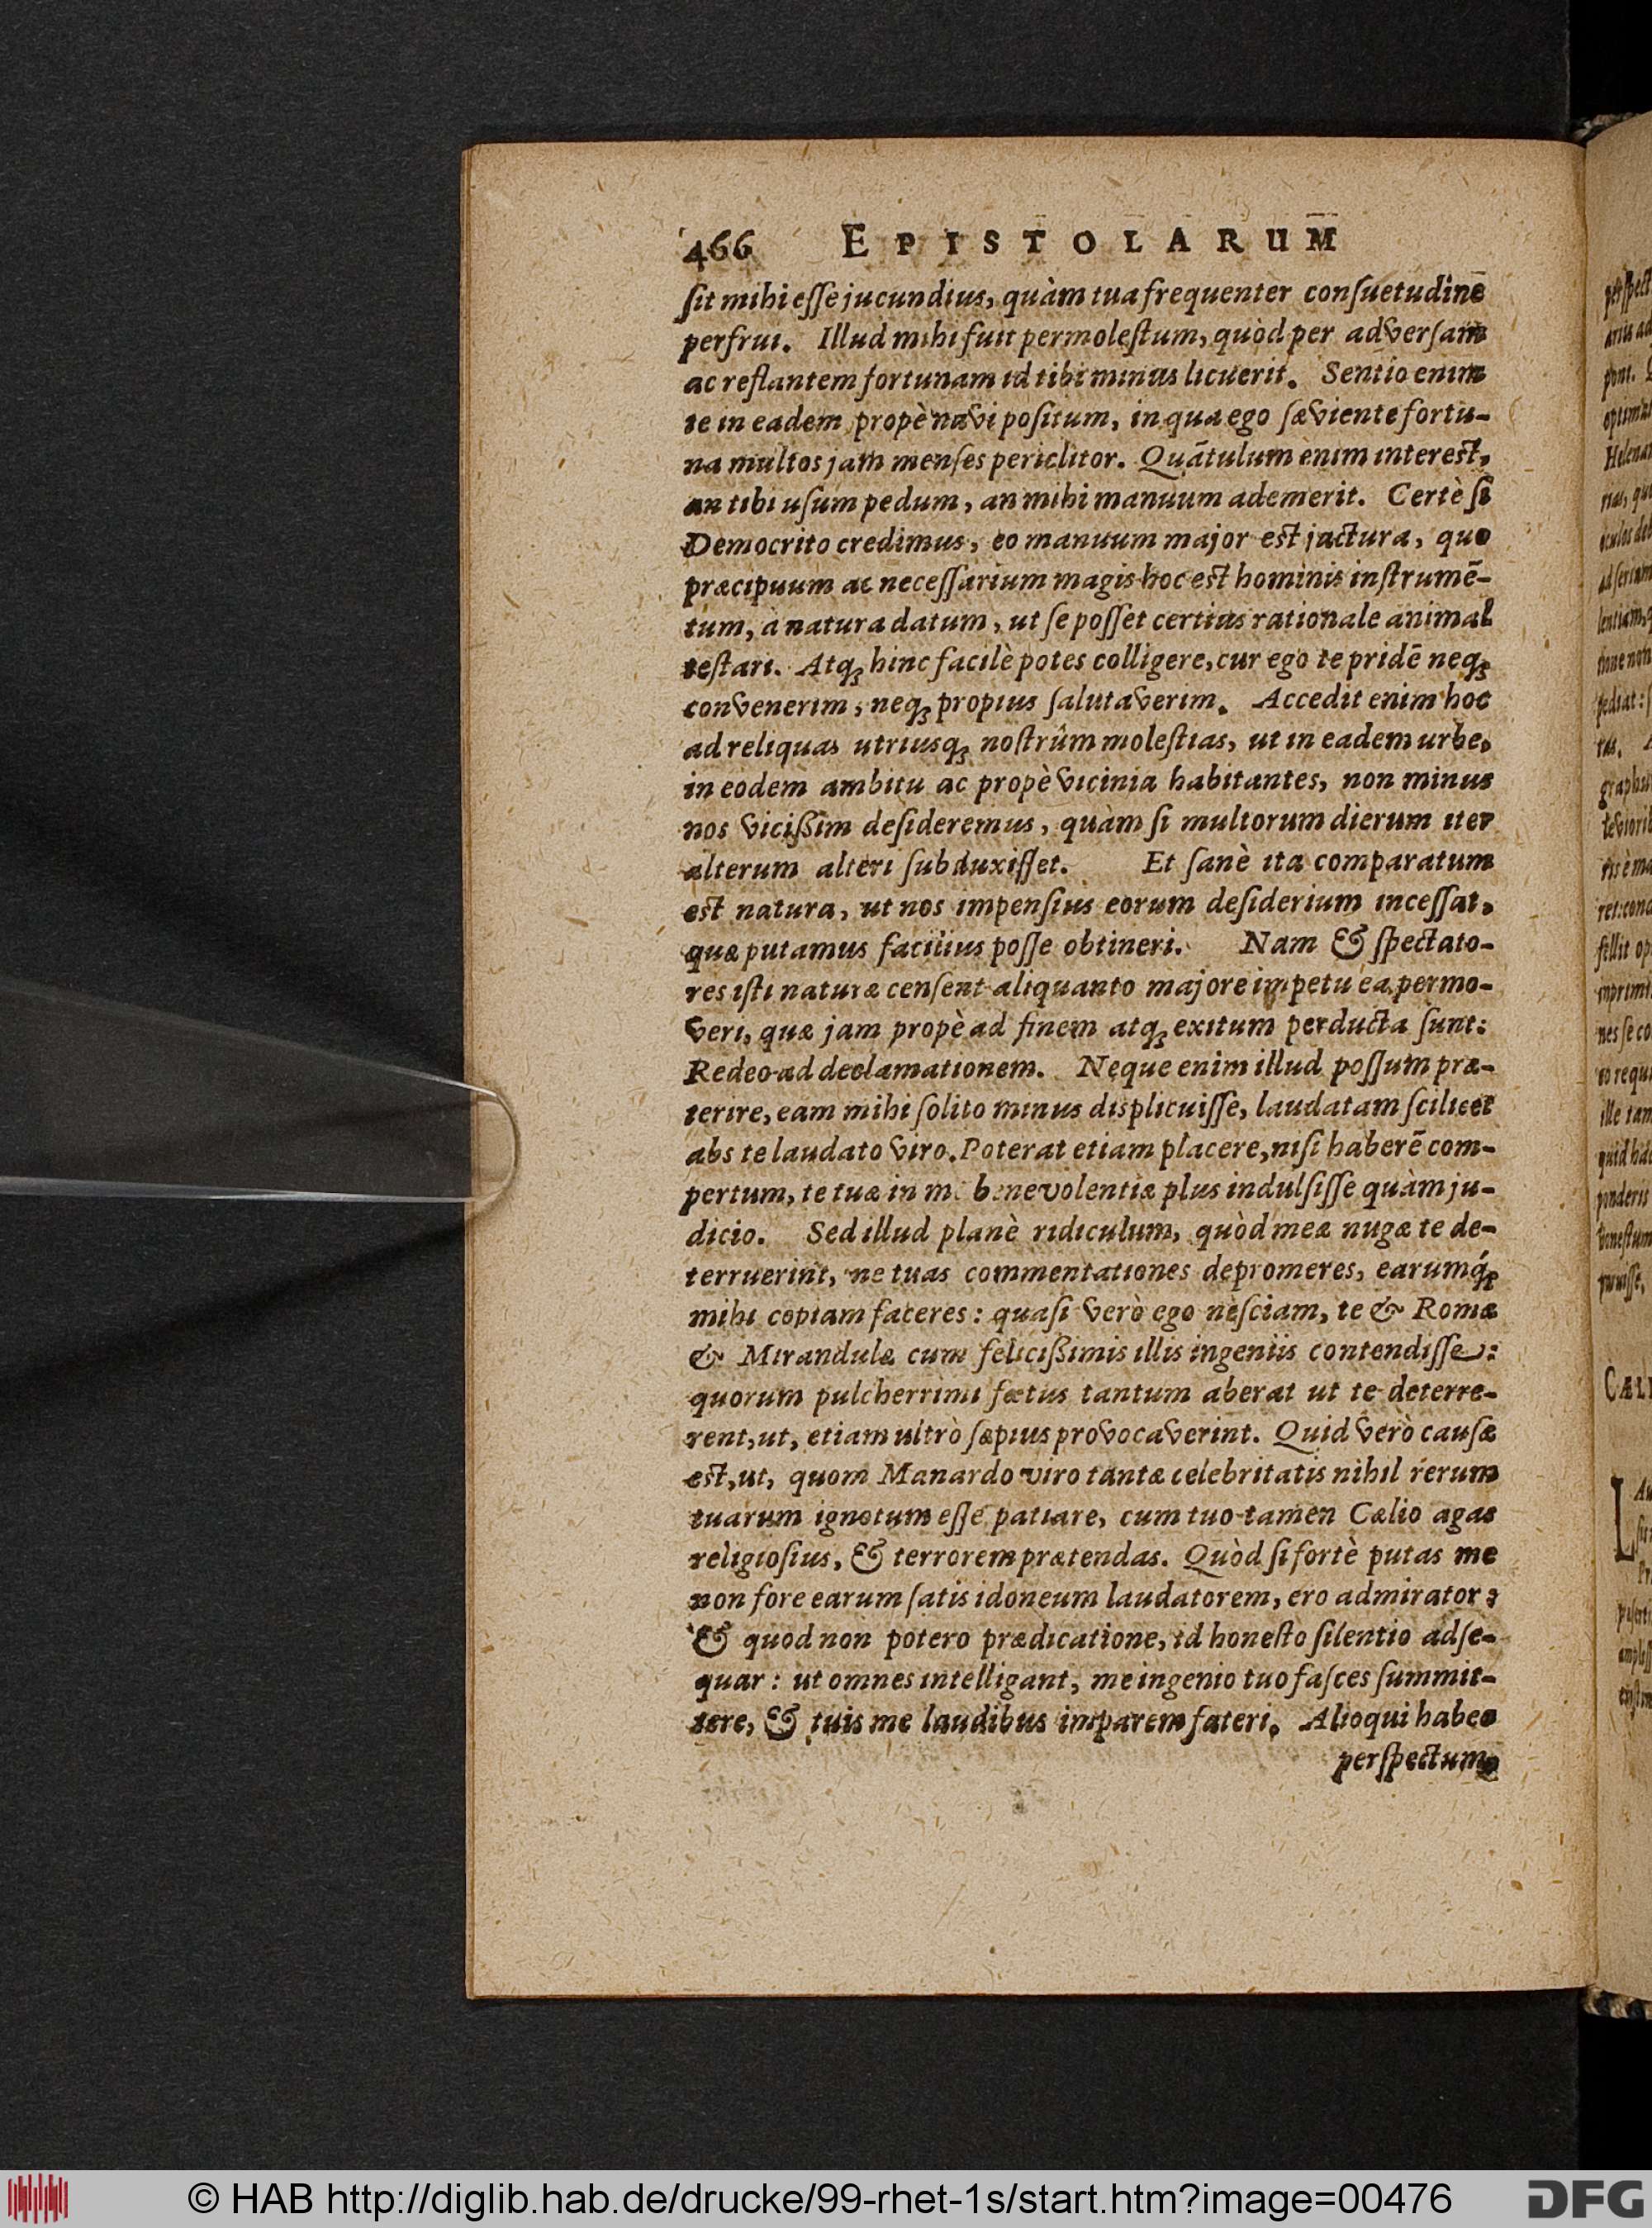 466 EPISTOLARUM
ſit mihi eſſe jucundius, quàm tua frequenter conſuetudine
perfrui. Illud mihi fuit permoleſtum, quòd per adverſam
ac reflantem fortunam id tibi minus licuerit. Sentio enim
te in eadem propè navi poſitum, in qua ego ſæviente fortu-
na multos jam menſes periclitor. Quātulum enim intereſt,
an tibi uſum pedum, an mihi manuum ademerit. Certè ſi
Democrito credimus, eo manuum major eſt jactura, quo
præcipuum ac neceſſarium magis hoc eſt hominis inſtrumē-
tum, à natura datum, ut ſe poſſet certius rationale animal
teſtari. Atq; hinc facilè potes colligere, cur ego te pridē neq;
convenerim, neq; propius ſalutaverim. Accedit enim hoc
ad reliquas utriusq; noſtrûm moleſtias, ut in eadem urbe,
in eodem ambitu ac propè vicinia habitantes, non minus
nos viciſſim deſideremus, quàm ſi multorum dierum iter
alterum alteri ſubduxiſſet. Et ſanè ita comparatum
eſt natura, ut nos impenſius eorum deſiderium inceſſat,
quæ putamus facilius poſſe obtineri. Nam & ſpectato-
res iſti naturæ cenſent aliquanto majore impetu ea permo-
veri, quæ jam propè ad finem atq; exitum perducta ſunt:
Redeo ad declamationem. Neque enim illud poſſum præ-
terire, eam mihi ſolito minus displicuiſſe, laudatam ſcilicet
abs te laudato viro. Poterat etiam placere, niſi haberē com-
pertum, te tuæ in me benevolentiæ plus indulſiſſe quàm ju-
dicio. Sed illud planè ridiculum, quòd meæ nugæ te de-
terruerint, ne tuas commentationes depromeres, earumq́;
mihi copiam faceres: quaſi verò ego neſciam, te & Romæ
& Mirandulæ cum feliciſſimis illis ingeniis contendiſſe:
quorum pulcherrimi fœtus tantum aberat ut te deterre-
rent, ut, etiam ultrò ſæpius provocaverint. Quid verò cauſæ
eſt, ut, quom Manardo viro tantæ celebritatis nihil rerum
tuarum ignotum eſſe patiare, cum tuo tamen Cælio agas
religioſius, & terrorem prætendas. Quòd ſi fortè putas me
non fore earum ſatis idoneum laudatorem, ero admirator;
& quod non potero prædicatione, id honeſto ſilentio adſe-
quar: ut omnes intelligant, me ingenio tuo faſces ſummit-
tere, & tuis me laudibus imparem fateri. Alioqui habeo
perſpectum,
© HAB http://diglib.hab.de/drucke/99-rhet-1s/start.htm?image=00476
DFG